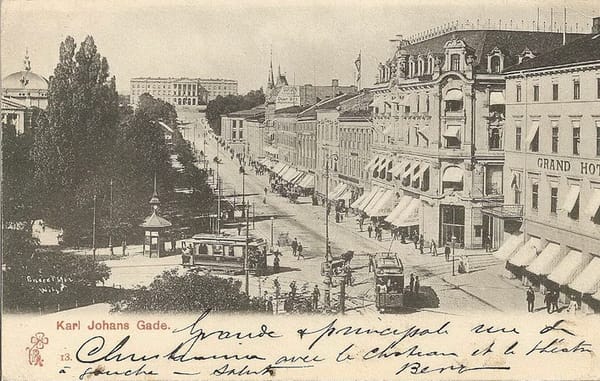 GRAND HOT
Karl Johans Gade.
13.
Grande & principal rue de
Christiania avec le chateau et le théatre
à gauche – Saluts